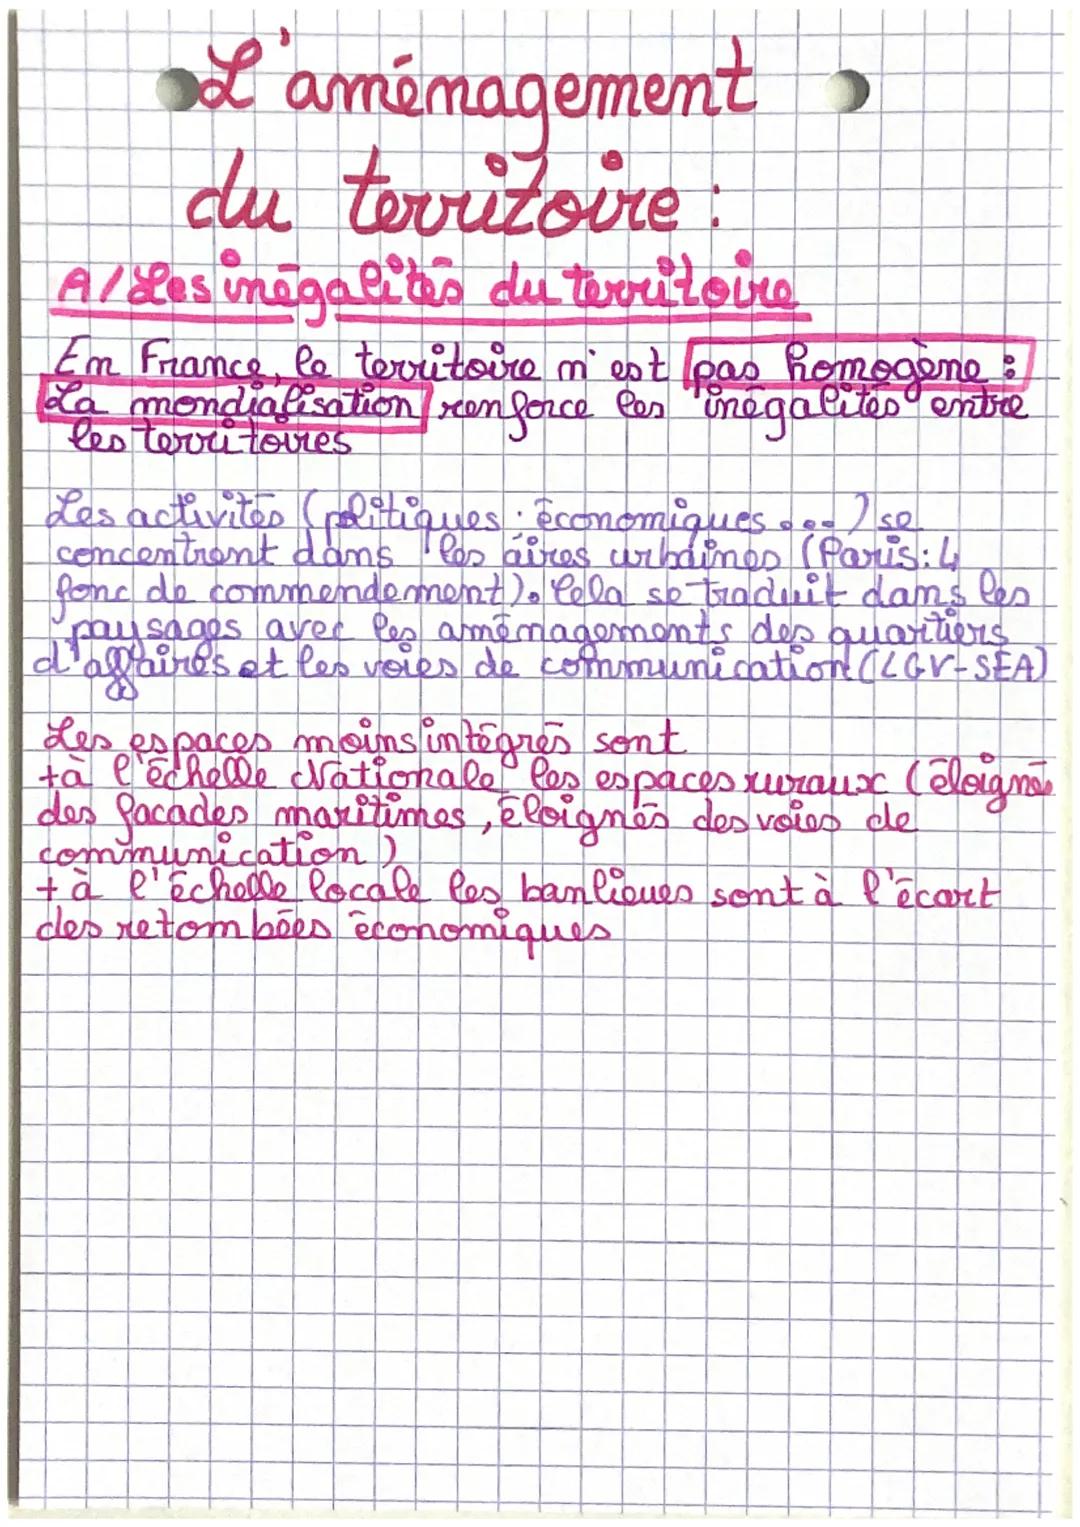 L'aménagement
du territoire :
A/ Les inégalités du territoire
En France, le territoire n'est pas homogène :
La mondialisation renforce les inégalités entre
les territoires
Les activités (politiques ; économiques ...) se
concentrent dans les aires urbaines (Paris : 4
fonc de commendement). Cela se traduit dans les
paysages avec les aménagements des quartiers
d'affaires et les voies de communication (LGV-SEA)
Les espaces moins intégrés sont
+à l'échelle Nationale les espaces ruraux (éloignés
des facades maritimes, éloignés des voies de
communication)
+ à l'échelle locale les banlieues sont à l'écart
des retombées économiques